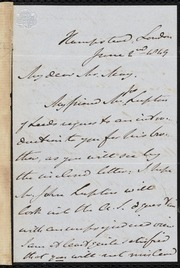 Hampstead, London
June 2nd 1849
My dear Mr. May,
My friend Mr. Lupton
of Leeds wishes to an intro-
duction to you for his bro-
ther, as you will see by
the inclosed letter. I hope
Mr John Lupton will
look at the A. S. question
with an unprejudiced eye.
I am at least quite satisfied
that you will not mislead